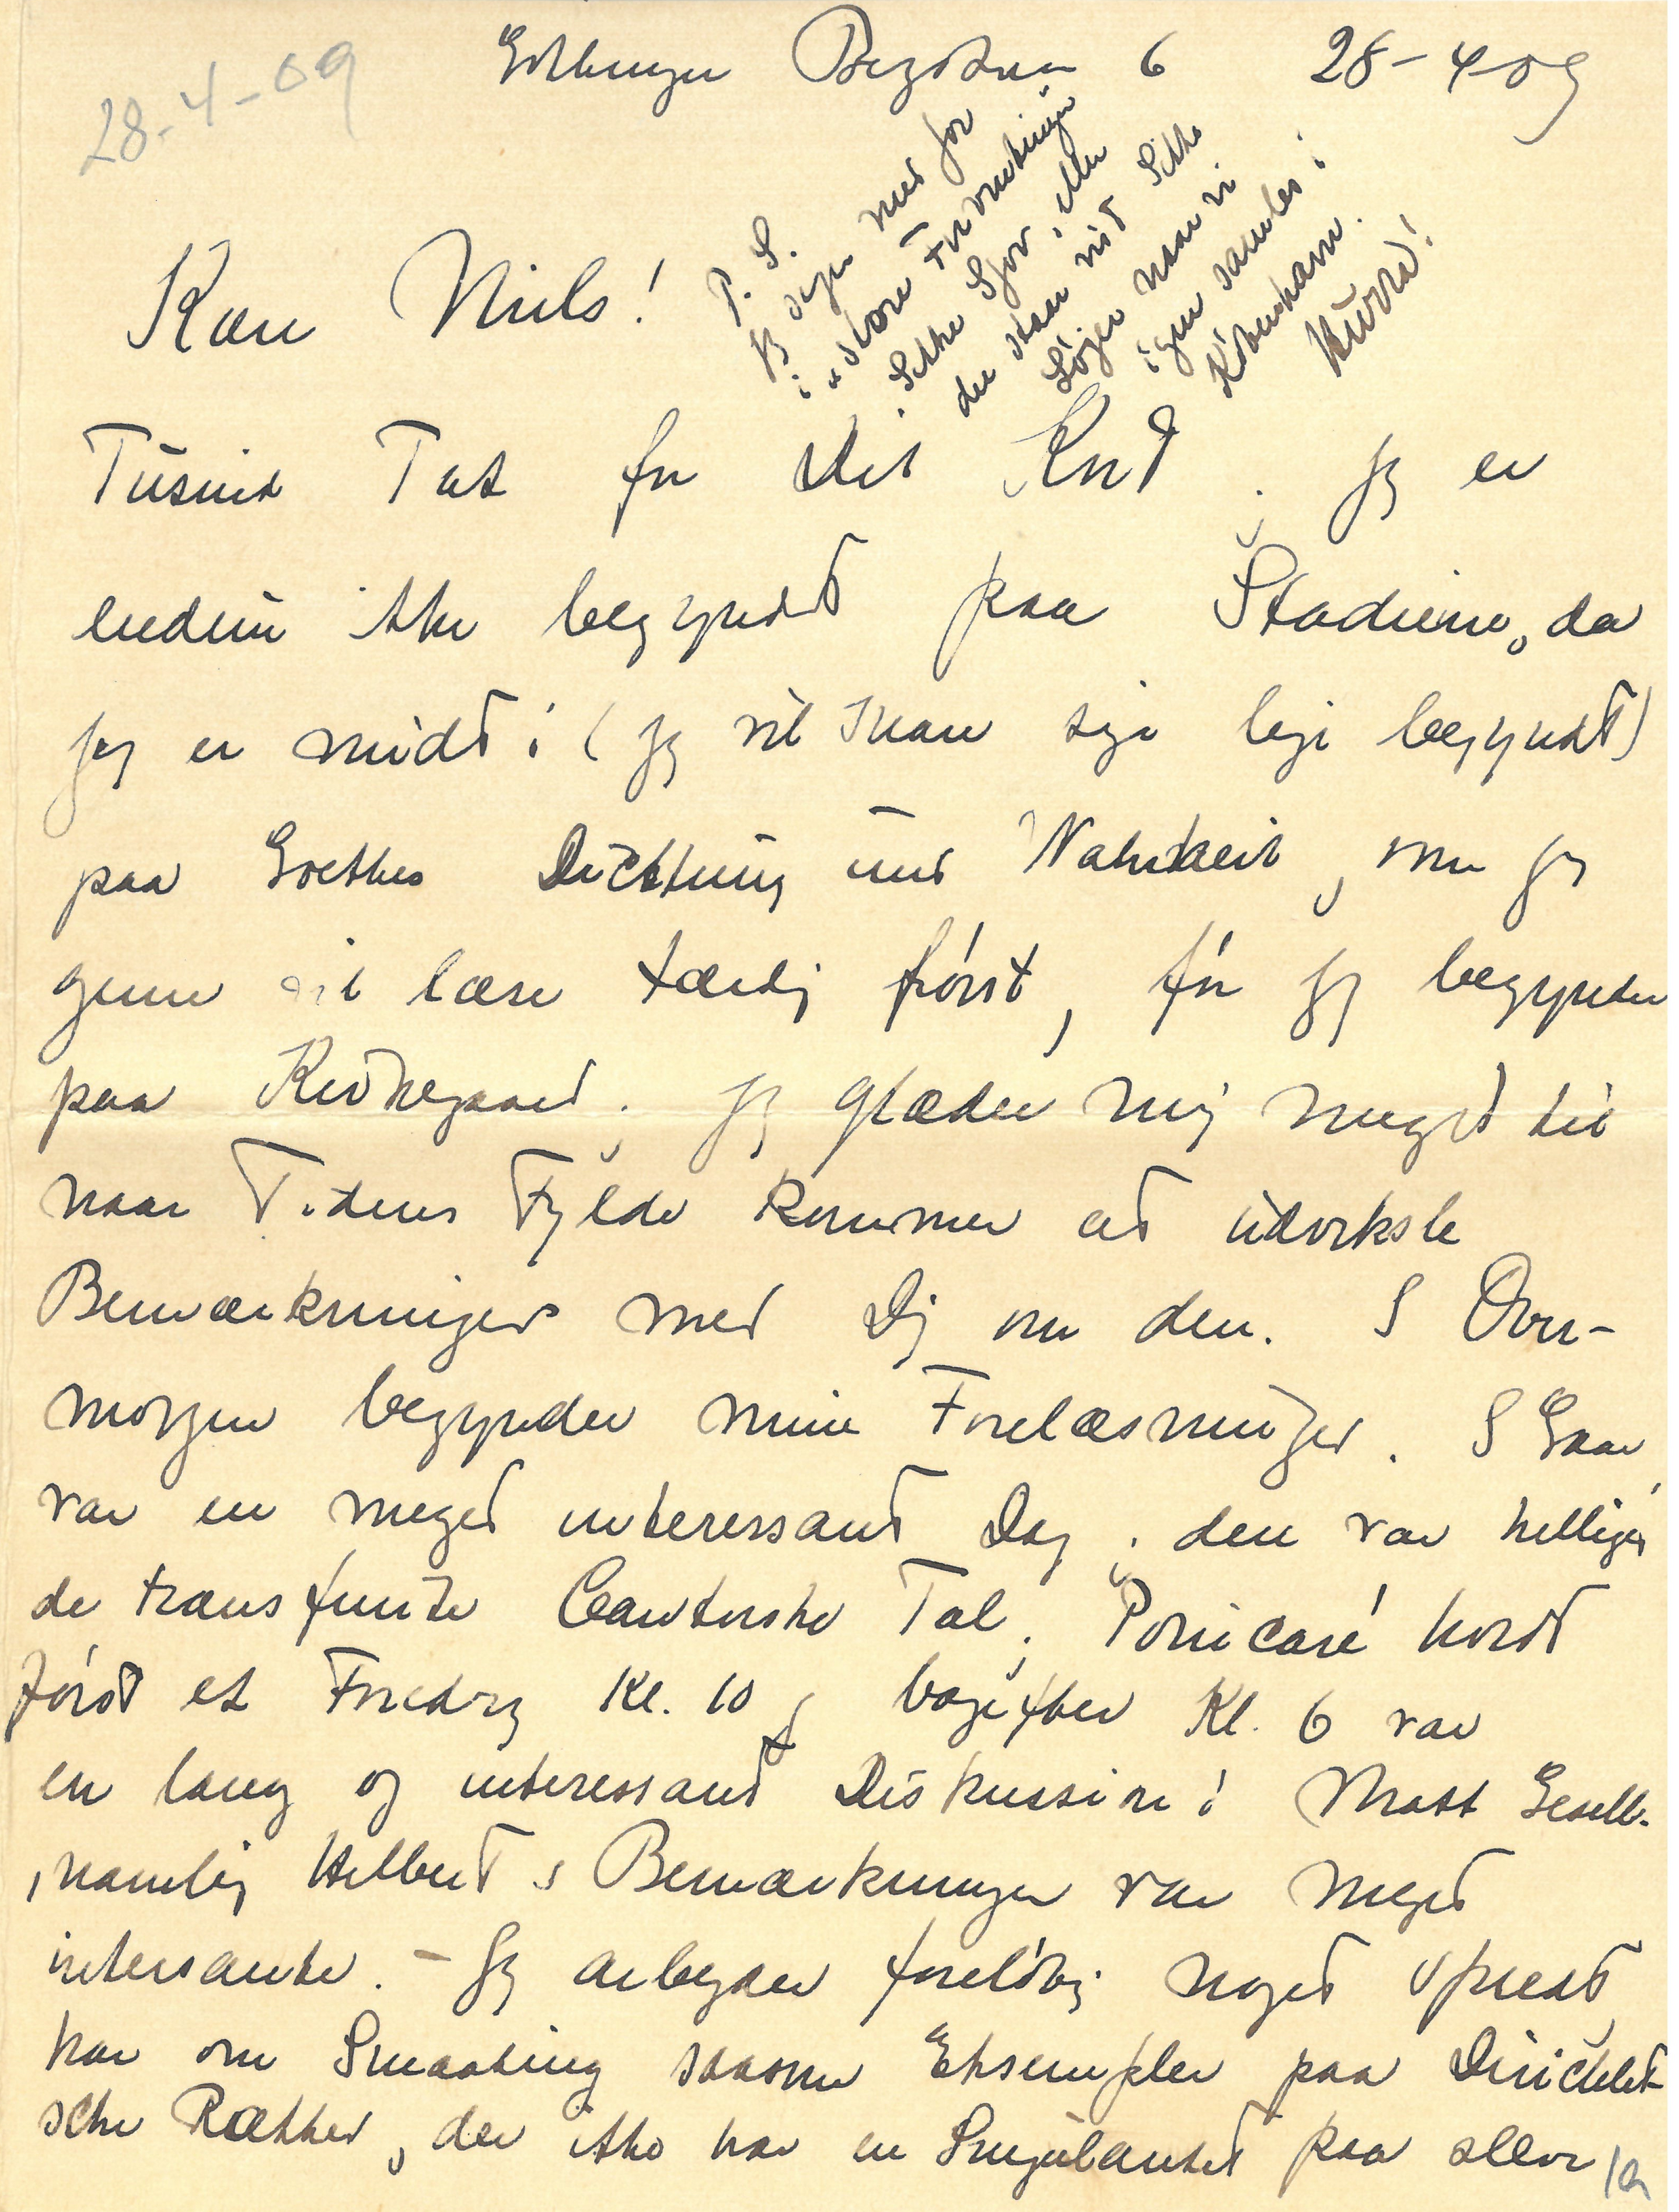 28-4-09
Göttingen 6 28-4-09
Kære Niels!
P. S.
Jeg siger mer for
i "store Forventninger
ikke Spor, eller
der staar vist ikke
Løgn naar vi
igen samles i
København.
Hurra!
Tusind Tak for Dit Kort. Jeg er
endnu ikke begyndt paa Stadierne, da
jeg er midt i (jeg vil snare sige lige begyndt)
paa Goethes Dichtung und Wahrheit, som jeg
gerne vil læse færdig først, før jeg begynder
paa Kierkegaard. Jeg glæder mig meget til
naar Tidens Fylde kommer at udveksle
Bemærkninger med Dig om den. I Over-
morgen begynder mine Forelæsninger. I Gaar
var en meget interessant Dag, den var helliget
de transfinite Cantorske Tal. Poincaré holdt
først et Foredrag Kl. 10, bagefter Kl. 6 var
en lang og interessant Diskussion i Math Gesell.
, navnlig Hilberts Bemærkninger var meget
intersante. – Jeg arbejder foreløbig noget spredt
har om Smaating saasom Eksempler paa Dirichlet
sche Rækker, der ikke har en Singularitet paa selve